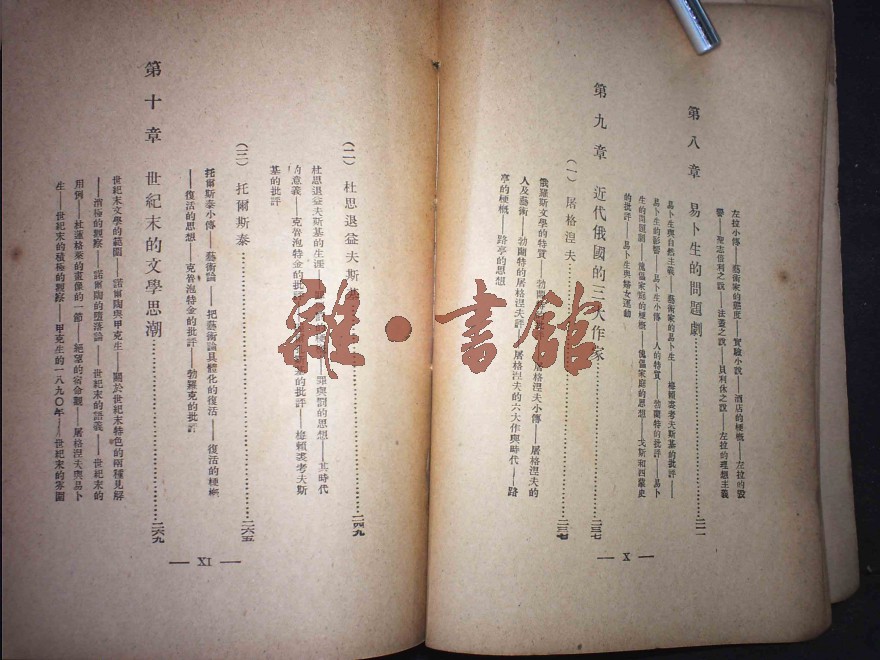 左拉小傳——藝術家的態度——實驗小說——酒店的梗概——左拉的影
響——聖志倍利之說——法蓋之說——貝利休之說——左拉的理想主義
第八章 易卜生的問題劇
易卜生與自然主義——藝術家的易卜生——梅賴裘考夫斯基的批評——
易卜生的影響——易卜生小傳——人的特質——勃蘭特的批評——易卜
生的問題劇——傀儡家庭的梗概——傀儡家庭的思想——戈斯和西蒙史
的批評——易卜生與婦女運動
第九章 近代俄國的三大作家 二三七
(一) 屠格涅夫 二三七
俄羅斯文學的特質 屠格涅夫小傳——屠格涅夫的
人及藝術——勃蘭特的屠格涅夫評——屠格涅夫的六大作與時代——路
亭的梗概——路亭的思想
— X —
(二) 杜思退益夫斯基 二四九
杜思退益夫斯基的生涯 罪與罰的思想——其時代
的意義——克魯泡特金的批評 基的批評——梅賴裘考夫斯
基的批評
(三) 托爾斯泰 二六五
托爾斯泰小傳——藝術論——把藝術論具體化的復活——復活的梗概
——復活的思想——克魯泡特金的批評——勃羅克的批評
第十章 世紀末的文學思潮 二六九
世紀末文學的範圍——諾爾陶與甲克生——關於世紀末特色的兩種見解
——消極的觀察——諾爾陶的墮落論——世紀末的語義——世紀末的
用例——杜蓮格萊的畫像的一節——絕望的宿命觀——屠格涅夫與易卜
生——世紀末的積極的觀察——甲克生的一八九〇年——世紀末的雰圍
— XI —
雜·書館